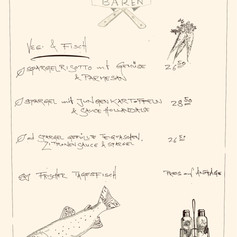 BÄREN
VEGI & FISCH
SPARGELRISOTTO mit GEMÜSE 26.50
& PARMESAN
SPARGEL mit JUNGEN KARTOFFELN 28.50
& SAUCE HOLLANDAISE
mit SPARGEL GEFÜLLTE TEIGTASCHEN,
ZITRONENSAUCE & SPARGEL
FRISCHER TAGESFISCH PREIS auf ANFRAGE